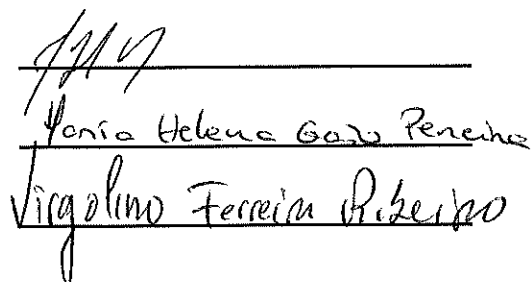 Maria Helena Gazo Pereira
Virgolino Ferreira Ribeiro